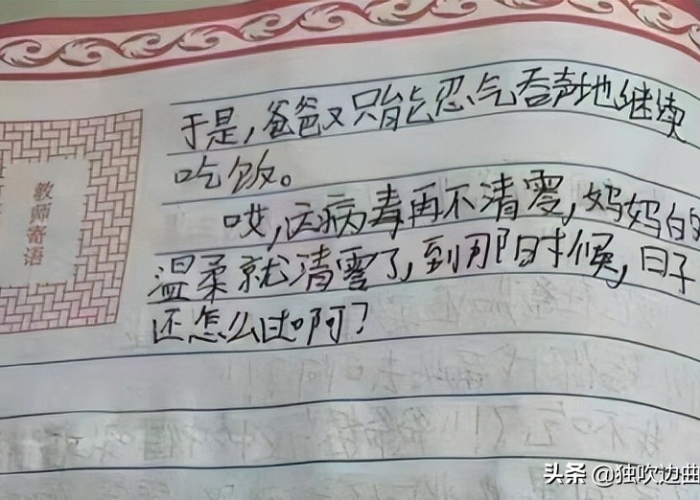 于是，爸爸又只能忍气吞声地继续
吃饭。
哎，这病毒再不清零，妈妈的
温柔就清零了，到那时候，日子
还怎么过啊？
教师寄语
头条 @独吹边曲